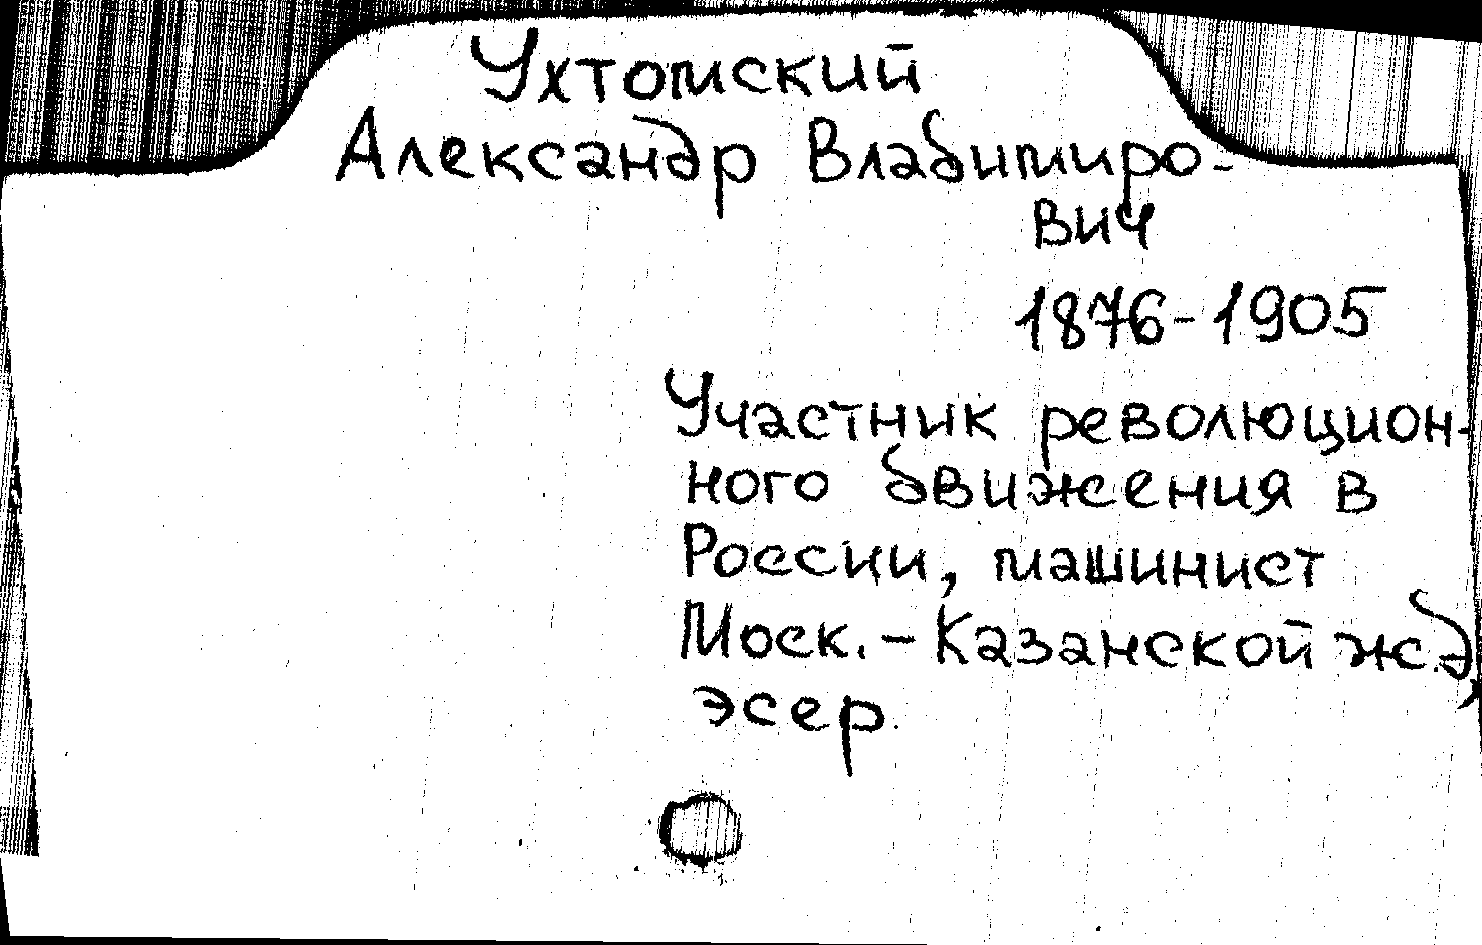 Ухтомский
Александр Владимиро-
вич
1876-1905
Участник революцион-
ного движения в
России, машинист
Моск.-Казанской ж.д,
эсер.